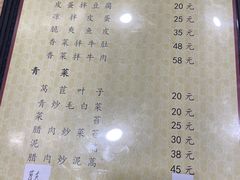 皮蛋拌豆腐 20元
凉拌皮蛋 25元
脆爽鱼皮 35元
香菜拌牛肚 48元
香菜拌牛肉 58元
青菜
莴苣叶子 20元
青炒毛白菜 20元
菜 25元
腊肉炒菜 30元
泥 38元
腊肉炒泥蒿 45元